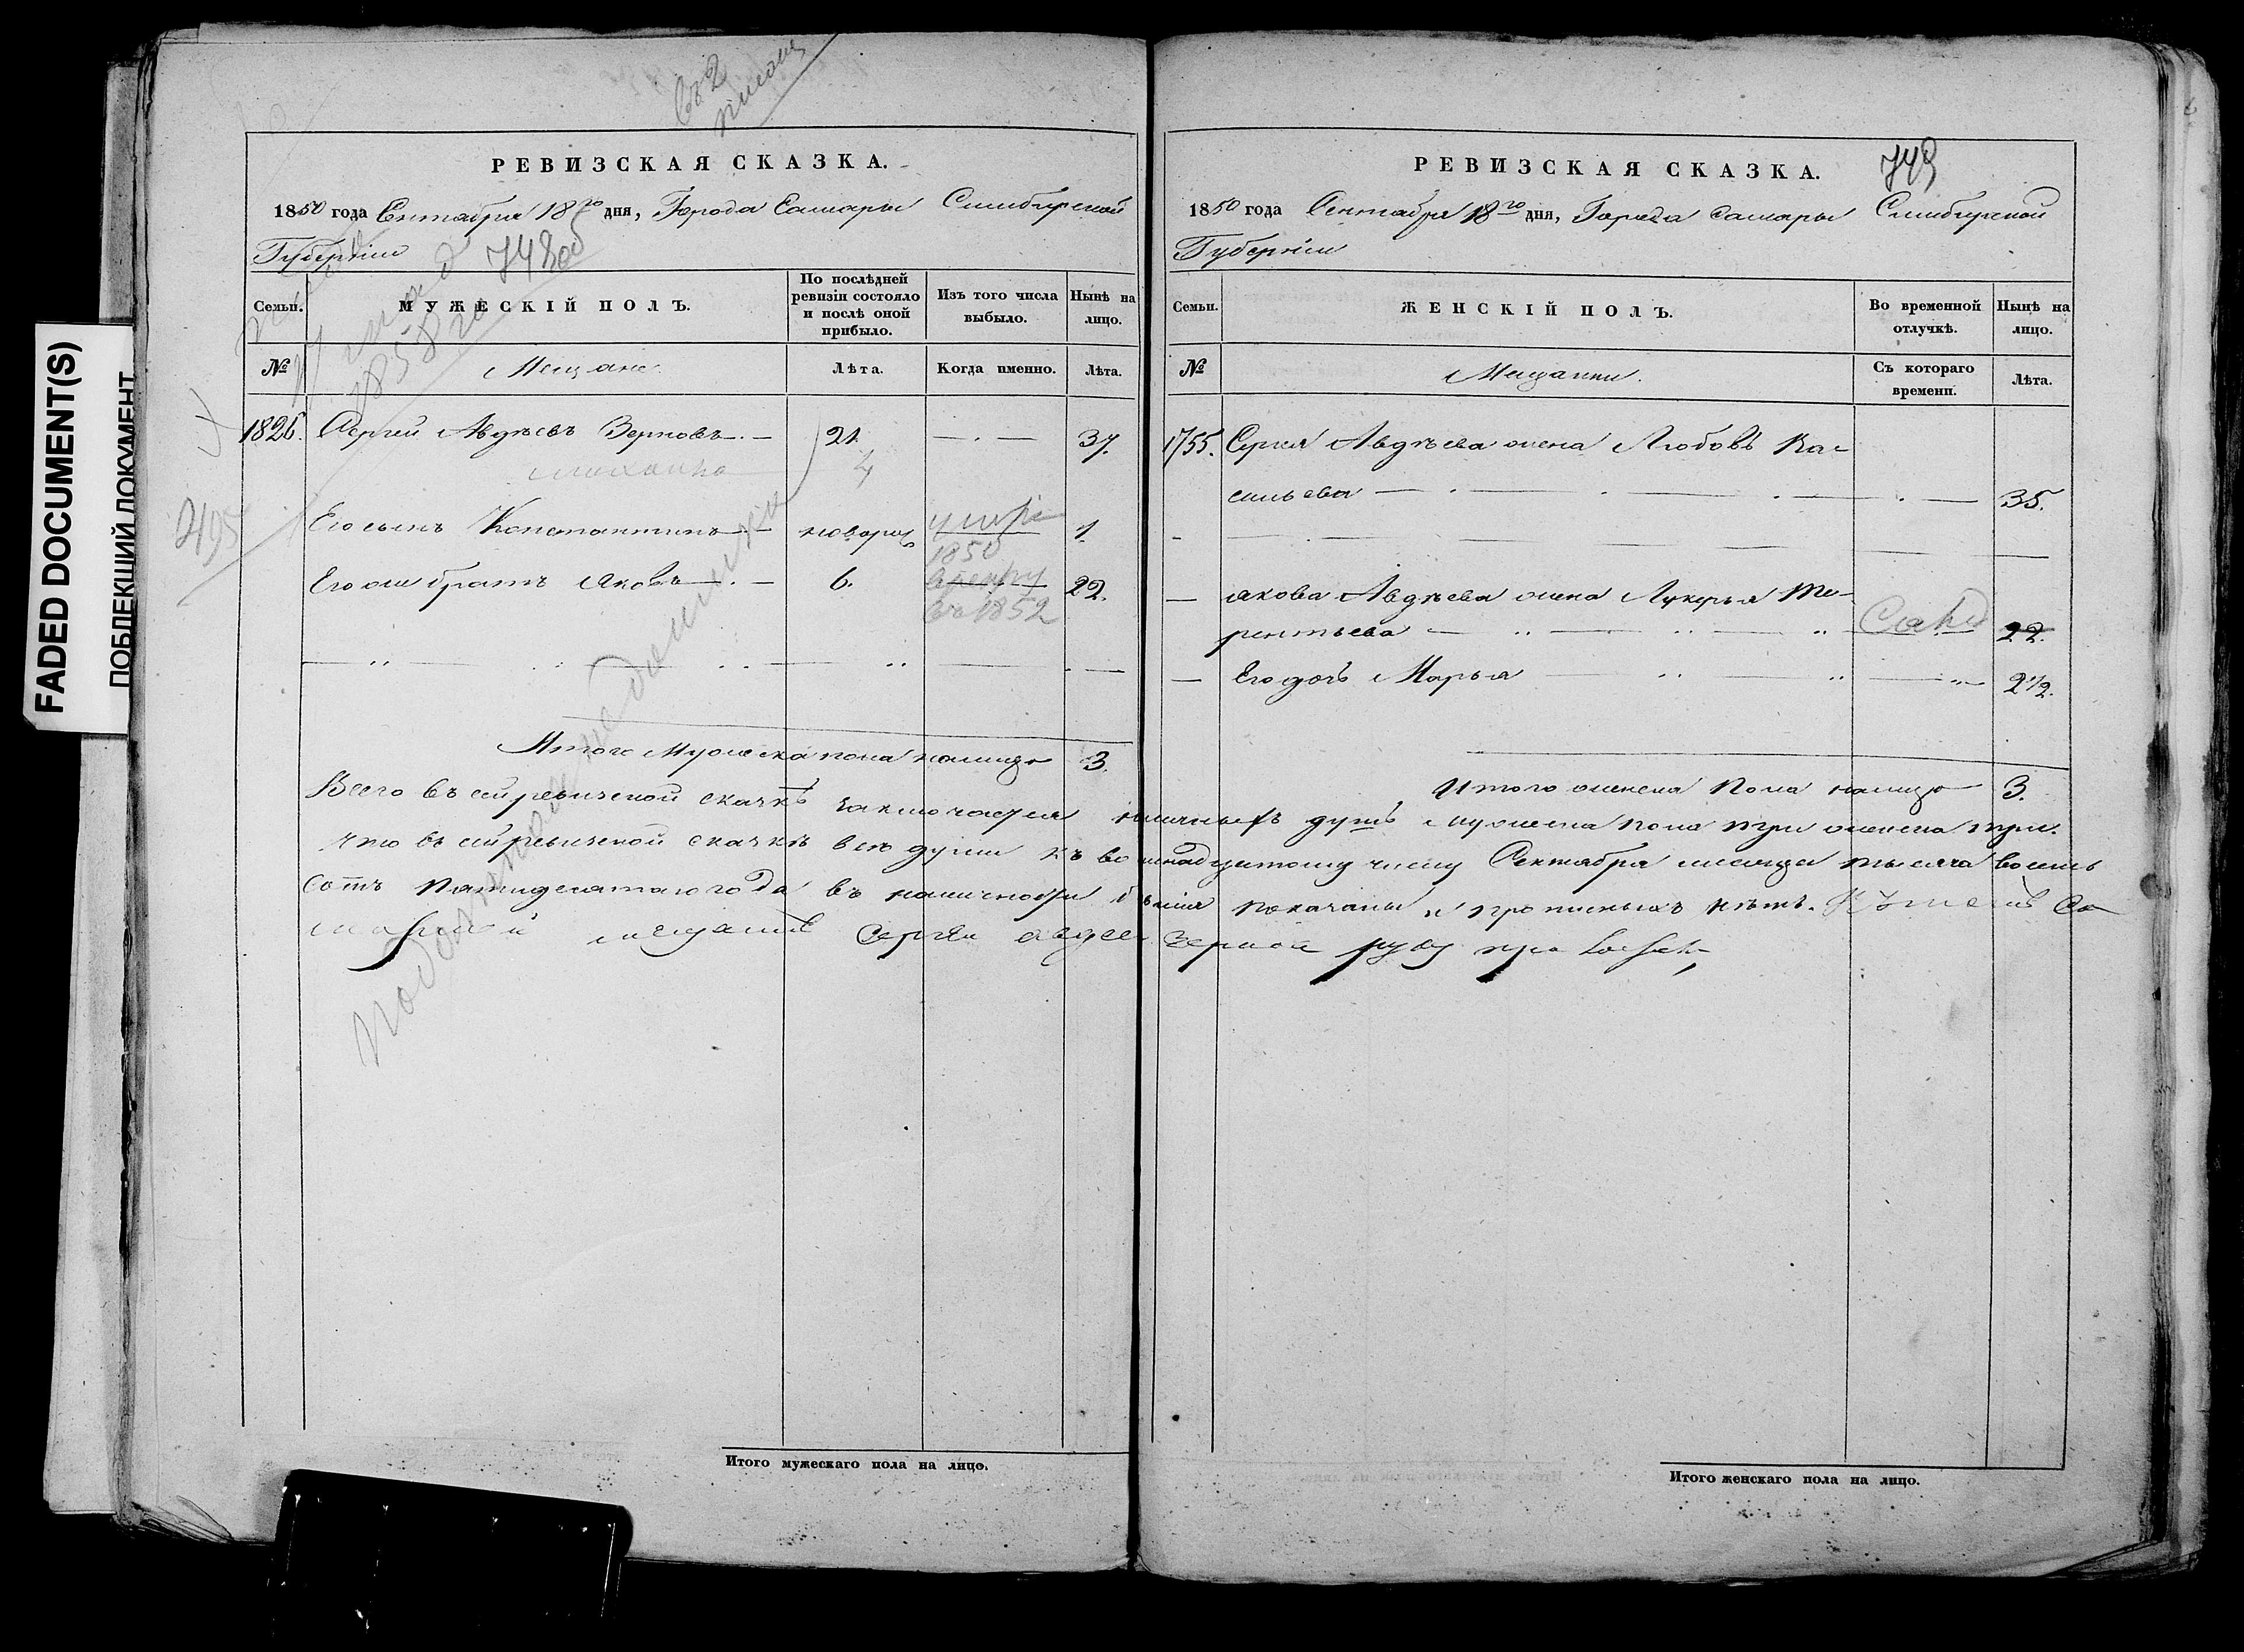 FADED DOCUMENT(S)
ПОБЛЕКШИЙ ДОКУМЕНТ
РЕВИЗСКАЯ СКАЗКА.
1850 года Сентября 18го дня, Города Самары Симбирской
Губерніи
748 об
Семьи.
МУЖЕСКІЙ ПОЛЪ.
По послѣдней
ревизіи состояло
и послѣ оной
прибыло.
Изъ того числа
выбыло.
Нынѣ на
лицо.
№
Мещане.
Лѣта.
Когда именно.
Лѣта.
1826. Сергей Авдѣевъ Зерновъ 21. 37.
4
Его сынъ Константинъ новорож 1.
1850
Его же братъ Яковъ 6. 22.
въ 1852
2495
Итого Мужеска пола налицо 3.
РЕВИЗСКАЯ СКАЗКА.
749
1850 года Сентября 18го дня, Города Самары Симбирской
Губерніи
Семьи.
ЖЕНСКІЙ ПОЛЪ.
Во временной
отлучкѣ.
Нынѣ на
лицо.
№
Мещанки.
Съ котораго
времени.
Лѣта.
1755. Сергея Авдѣева жена Любовь Ва-
сильева 35.
Якова Авдѣева жена Лукерья Те-
рентьева 22.
Его дочь Марья 2 1/2.
Итого женска пола налицо 3.
Всего въ сей ревизской сказкѣ заключается наличныхъ душъ мужеска пола три женска три.
Что въ сей ревизской сказкѣ всѣ души къ восемнадцатому числу Сентября месяца тысяча восемь
сотъ пятидесятаго года въ наличности бывшія показаны и прописныхъ нѣтъ. К Са
мещанинъ Сергей Авдеев Зернов руку
Итого мужескаго пола на лицо.
Итого женскаго пола на лицо.